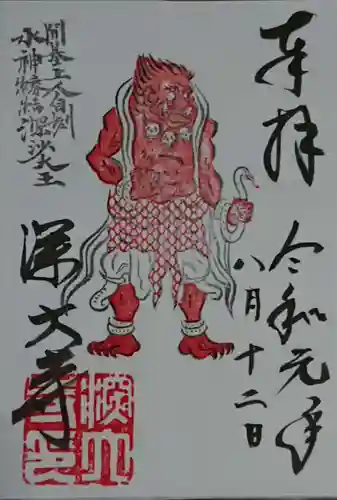 奉拝
令和元年
八月十二日
開基上人自刻
水神特結深沙大王
深大寺